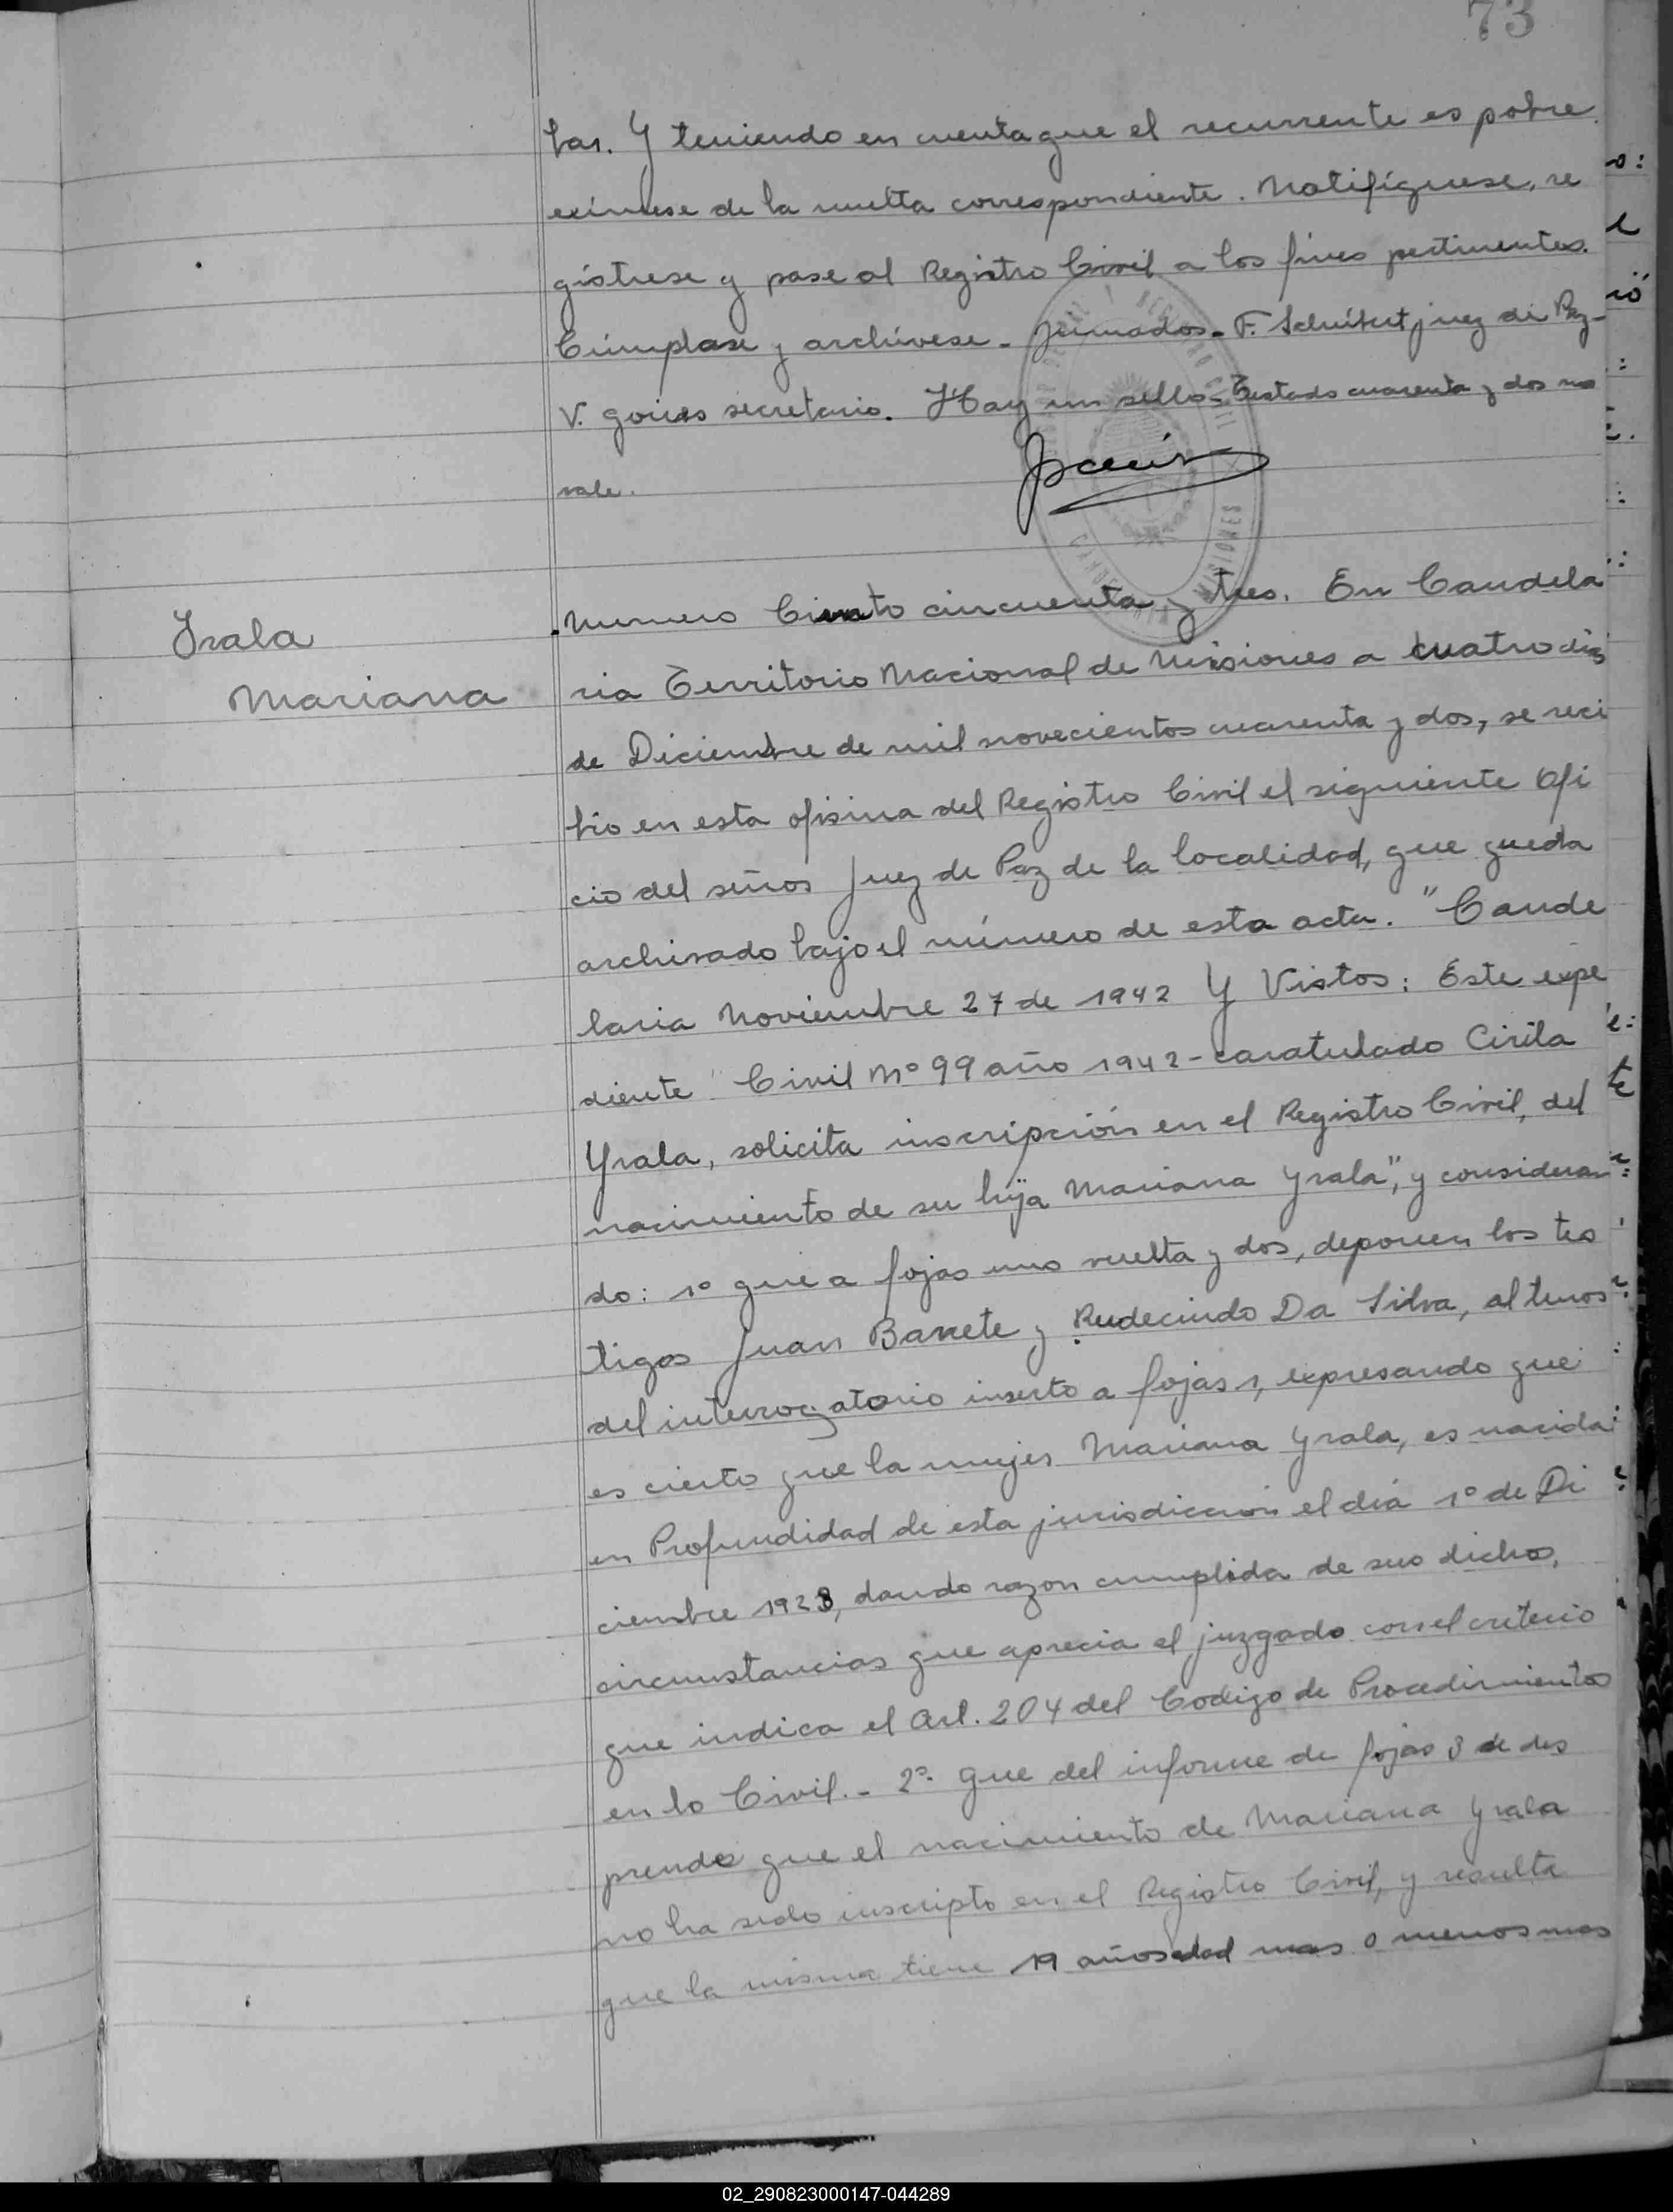 73
bas. Y teniendo en cuenta que el recurrente es pobre
exímese de la multa correspondiente. Notifíquese, re
gístrese y pase al Registro Civil a los fines pertinentes.
Cúmplase y archívese - firmados - F. Schubert juez de Paz -
V. Goires secretario. Hay un sello - Testado cuarenta y dos no
vale.
REGISTRO CIVIL
MISIONES
Irala
Mariana
Numero Ciento cincuenta y tres. En Candela
ria Territorio Nacional de Misiones a cuatro días
de Diciembre de mil novecientos cuarenta y dos, se reci
bio en esta ofisina del Registro Civil el siguiente Ofi
cio del señor Juez de Paz de la localidad, que queda
archivado bajo el número de esta acta. "Cande
laria Noviembre 27 de 1942 Y Vistos: Este expe
diente "Civil Nº 99 año 1942 - caratulado Cirila
Yrala, solicita inscripción en el Registro Civil, del
nacimiento de su hija Mariana Yrala", y consideran
do: 1º que a fojas uno vuelta y dos, deponen los tes
tigos Juan Barrete y Rudecindo Da Silva, al tenor
del interrogatorio inserto a fojas 1, expresando que
es cierto que la mujer Mariana Yrala, es nacida
en Profundidad de esta jurisdiccion el día 1º de Di
ciembre 1923, dando razon cumplida de sus dichos,
circunstancias que aprecia el juzgado con el criterio
que indica el Art. 204 del Codigo de Procedimientos
en lo Civil. - 2º- Que del informe de fojas 3 se des
prende que el nacimiento de Mariana Yrala
no ha sido inscripto en el Registro Civil, y resulta
que la misma tiene 19 años edad mas o menos mas
02_290823000147-044289